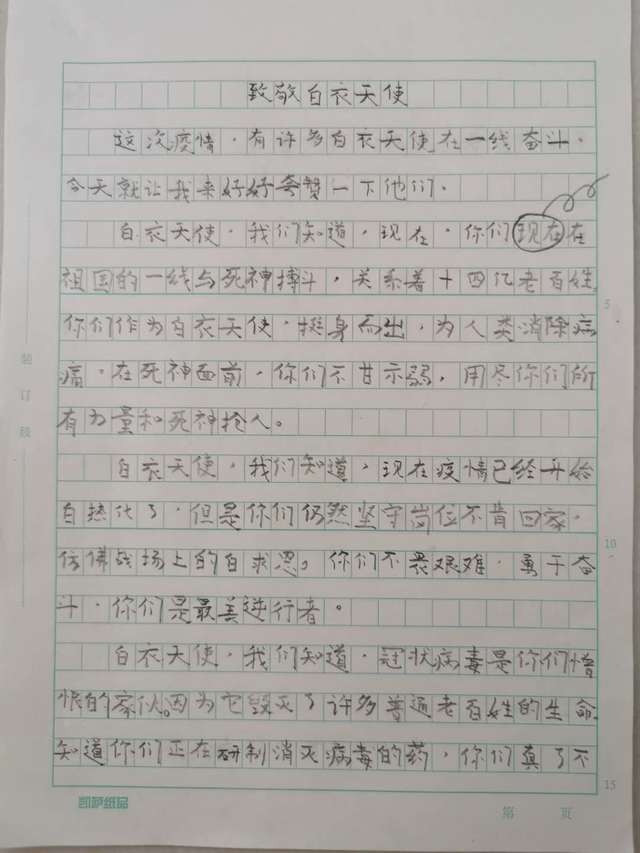 致敬白衣天使
这次疫情，有许多白衣天使在一线奋斗，
今天就让我来好好夸赞一下他们。
白衣天使，我们知道，现在，你们现在在
祖国的一线与死神搏斗，关系着十四亿老百姓，
你们作为白衣天使，挺身而出，为人类消除病
痛，在死神面前，你们不甘示弱，用尽你们所
有力量和死神抢人。
白衣天使，我们知道，现在疫情已经开始
白热化了，但是你们仍然坚守岗位不肯回家，
仿佛战场上的白求恩。你们不畏艰难，勇于奋
斗，你们是最美逆行者。
白衣天使，我们知道，冠状病毒是你们
恨的家伙。因为它毁灭了许多普通老百姓的生命，
知道你们正在研制消灭病毒的药，你们真了不
5
10
15
装订线
凯萨纸品
第 页